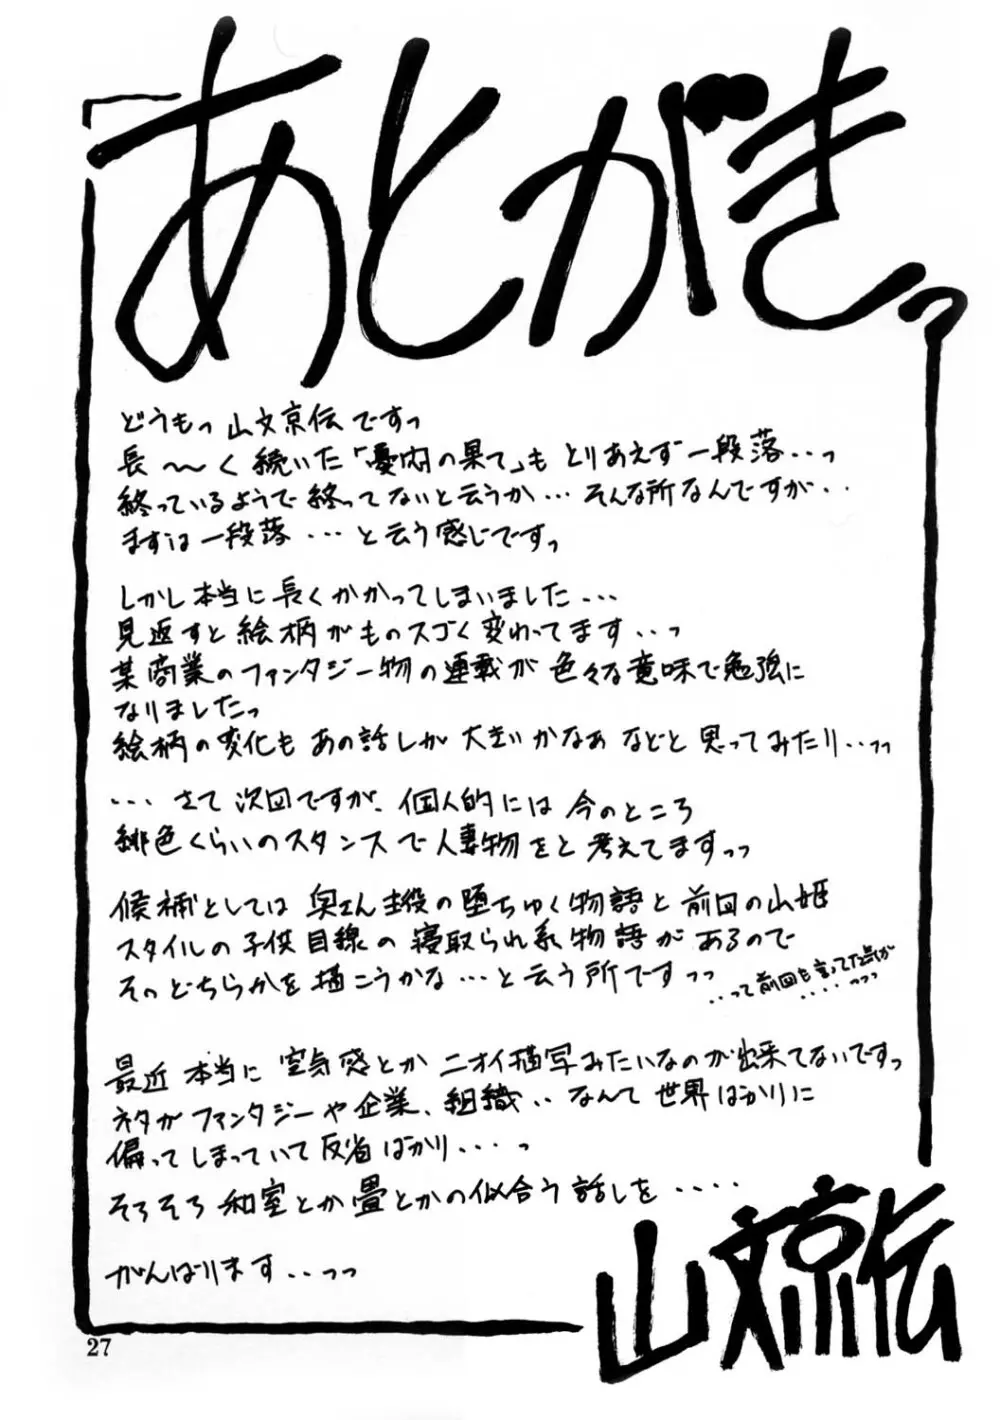 あとがきっ
どうもっ山文京伝ですっ
長〜〜く続いた「憂悶の果て」も とりあえず一段落‥っ
終っているようで終ってないと云うか…そんな所なんですが‥
まずは一段落…と云う感じですっ
しかし本当に長くかかってしまいました…
見返すと絵柄がものスゴく変わってます‥っ
某商業のファンタジー物の連載が色々な意味で勉強に
なりましたっ
絵柄の変化もあの話しが大きいかなぁなどと思ってみたり‥っっ
…さて次回ですが、個人的には今のところ
緋色くらいのスタンスで人妻物をと考えてますっっ
候補としては奥さん主役の堕ちゆく物語と前回の山姫
スタイルの子供目線の寝取られ系物語があるので
そのどちらかを描こうかな…と云う所ですっっ
‥って前回も言ってた気が
‥‥っっっ
最近本当に空気感とかニオイ描写みたいなのが出来てないですっ
ネタがファンタジーや企業、組織‥なんて世界ばかりに
偏ってしまっていて反省ばかり‥‥っ
そろそろ和室とか畳とかの似合う話しを‥‥
がんばります‥っっ
山文京伝
27